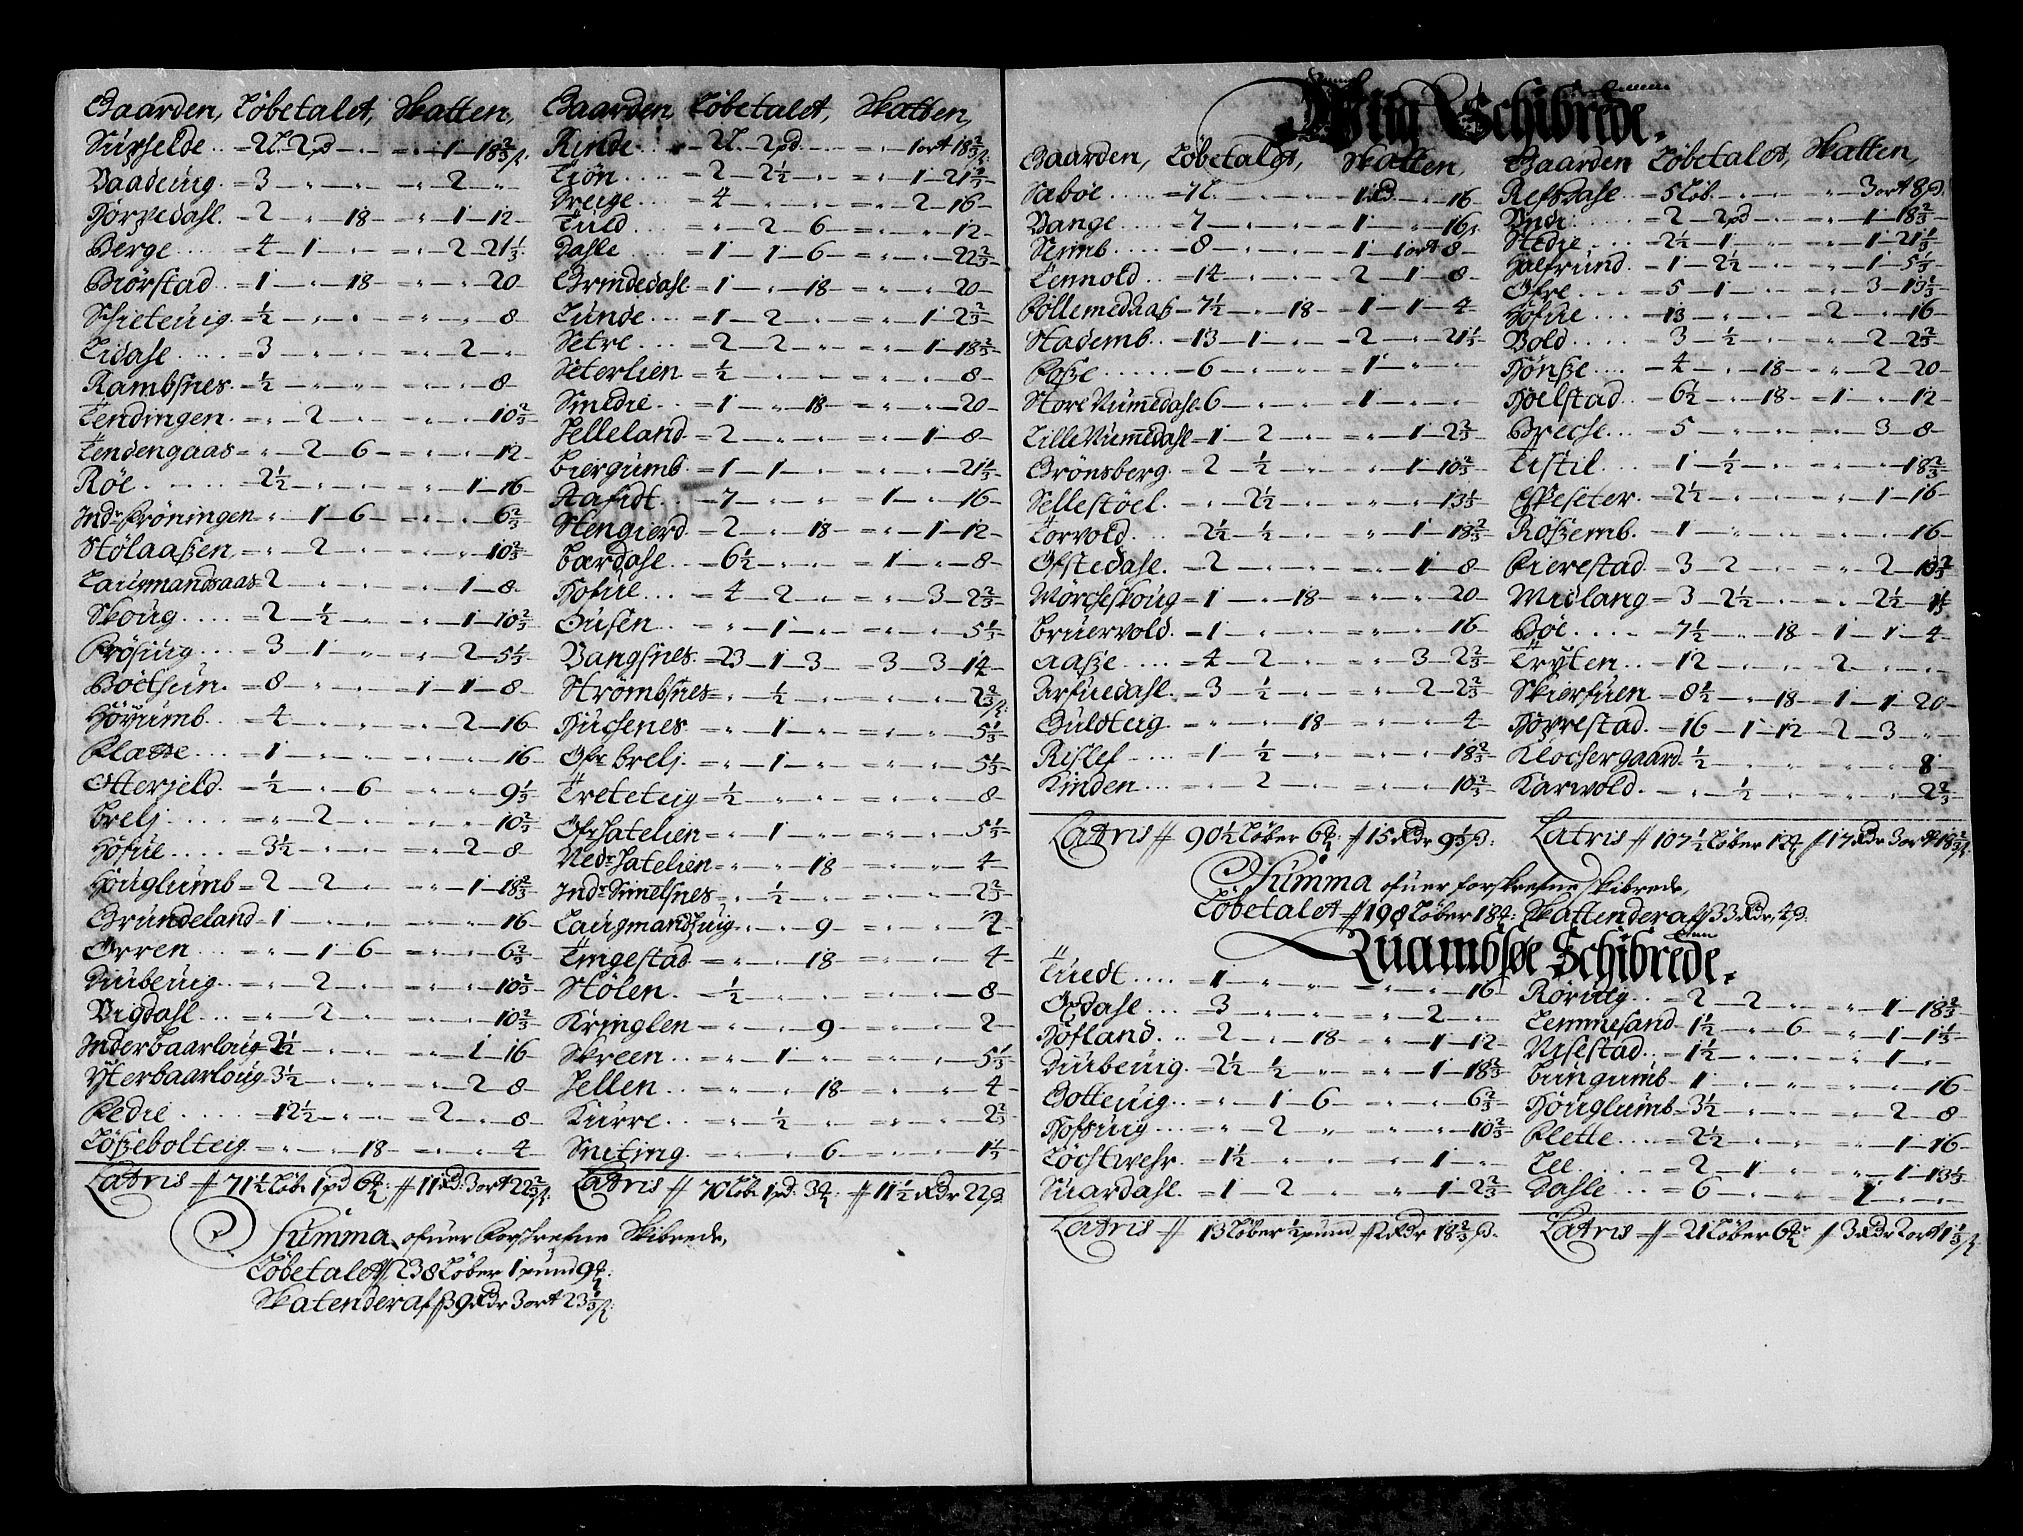 Gaarden, Löbetalet, Skatten,
Sürhelde .. = 2 L. 2 pd — „ — = „ — 1 — 18 2/3 ß.
Vaadeuig = 3 — „ — „ — = „ — 2 — „
Hörvedahl = 2 — „ — 18 — = „ — 1 — 12
Berge .... = 4 — 1 — „ — = „ — 2 — 21 1/3
Biörstad = 1 — „ — 18 — = „ — „ — 20
Schieteuig = 1/2 — „ — „ — = „ — „ — 8
Lidahl .... = 3 — „ — „ — = „ — 2 — „
Rambsnes = 1/2 — „ — „ — = „ — „ — 8
Tendingen = „ — 2 — „ — = „ — „ — 10 2/3
Tendengaas = „ — 2 — 6 — = „ — „ — 12
Röe ..... = 2 1/2 — „ — „ — = „ — 1 — 16
Indr Fröningen = „ — 1 — 6 — = „ — „ — 6 2/3
Stölaaßen = „ — 2 — „ — = „ — „ — 10 2/3
Laugmandsaas = 2 — „ — „ — = „ — 1 — 8
Skoug .... = 2 — 1/2 — „ — = „ — 1 — 10 2/3
Frösuig ... = 3 — 1 — „ — = „ — 2 — 5 1/3
Böetsuin = 8 — „ — „ — = 1 — 1 — 8
Hörumb .. = 4 — „ — „ — = „ — 2 — 16
Flatte .... = 1 — „ — „ — = „ — „ — 16
Otterjeld = 1/2 — „ — 6 — = „ — „ — 9 1/3
Brelj .... = „ — 2 — „ — = „ — „ — 10 2/3
Höfue .... = 3 1/2 — „ — „ — = „ — 2 — 8
Houglumb = 2 — 2 — „ — = „ — 1 — 18 2/3
Grundeland = 1 — „ — „ — = „ — „ — 16
Orren .... = „ — 1 — 6 — = „ — „ — 6 2/3
Duubeuig = „ — 2 — „ — = „ — „ — 10 2/3
Vigdahl ... = „ — 2 — „ — = „ — „ — 10 2/3
Inderbaarloug = 2 1/2 — „ — „ — = „ — 1 — 16
Yterbaarloug = 3 1/2 — „ — „ — = „ — 2 — 8
Fedie .... = 12 1/2 — „ — „ — = 2 — „ — 8
Lößebolteig = „ — „ — 18 — = „ — „ — 4
Latris // 71 1/2 Löb 1 pd 6 m // 11 Rd 3 ort 22 2/3 ß
Gaarden Löbetalet, Skatten,
Rinde .... = 2 L. 2 pd. — „ — = „ — 1 ort 18 2/3 ß.
Liön .... = 2 — 2 1/2 — „ — = „ — 1 — 21 1/3
Freige ... = 4 — „ — „ — = „ — 2 — 16
Tued .... = „ — 2 — 6 — = „ — „ — 12
Dahle .... = 1 — 1 — 6 — = „ — „ — 22 2/3
Grindedahl = 1 — „ — 18 — = „ — „ — 20
Lunde ... = 1 — 2 — „ — = „ — 1 — 2 2/3
Setre .... = 2 — 2 — „ — = „ — 1 — 18 2/3
Seterlien = 1/2 — „ — „ — = „ — „ — 8
Smedie ... = 1 — „ — 18 — = „ — „ — 20
Felleland = 2 — „ — „ — = „ — 1 — 8
Biergumb = 1 — 1 — „ — = „ — „ — 21 1/3
Stafidt .... = 7 — „ — „ — = 1 — „ — 16
Stengierd = 2 — „ — 18 — = „ — 1 — 12
Bærdahl .. = 6 1/2 — „ — „ — = 1 — „ — 8
Hofue .... = 4 — 2 — „ — = „ — 3 — 2 2/3
Ousen .... = „ — 1 — „ — = „ — „ — 5 1/3
Vangsnes = 23 — 1 — 3 — = 3 — 3 — 14
Strömbsnes = „ — 1/2 — „ — = „ — „ — 2 2/3 ß.
Huchenes = „ — 1 — „ — = „ — „ — 5 1/3
Ofr Brelj = „ — 1 — „ — = „ — „ — 5 1/3
Treteteig = 1/2 — „ — „ — = „ — „ — 8
Ofr Hatelien = „ — 1 — „ — = „ — „ — 5 1/3
Nedr Hatelien = „ — „ — 18 — = „ — „ — 4
Indr Simelsnes = „ — 1/2 — „ — = „ — „ — 2 2/3
Laugmandzuig = „ — „ — 9 — = „ — „ — 2
Tingestad = „ — „ — 18 — = „ — „ — 4
Stölen .. = 1/2 — „ — „ — = „ — „ — 8
Kringlen = „ — „ — 9 — = „ — „ — 2
Skreen .. = „ — 1 — „ — = „ — „ — 5 1/3
Fellen ... = „ — „ — 18 — = „ — „ — 4
Kurre ... = „ — 1/2 — „ — = „ — „ — 2 2/3
Smiting = „ — „ — 6 — = „ — „ — 1 1/3
Latris // 70 Löb 1 pd. 3 m: // 11 1/2 Rdr 22 ß
Summa ofuer Forskrefne Skibrede,
Löbetalet // 238 Löber 1 pund 9 m:
Skatenderaf // 39 Rdr 3 ort 23 1/3 ß:
Wiig Schibrede.
Gaarden, Löbetalet, Skatten,
Saböe .... = 7 L. — „ — „ — 1 Rd. — „ — 16
Vange .... = 7 — „ — „ — 1 — „ — 16
Semb .... = 8 — „ — „ — 1 — 1 ort 8
Tennold .. = 14 — „ — „ — 2 — 1 — 8
Föllemedaas = 7 1/2 — „ — 18 — 1 — 1 — 4
Stademb .. = 13 — 1 — „ — = 2 — „ — 21 1/3
Foße ..... = 6 — „ — „ — = 1 — „ — „
Store Numedahl 6 — „ — „ — = 1 — „ — „
Lille Numedahl = 1 — 2 — „ — = „ — 1 — 2 2/3
Grönsberg = 2 — 1/2 — „ — = „ — 1 — 10 2/3
Sellestöel = „ — 2 1/2 — „ — = „ — „ — 13 1/3
Torvold .. = 2 1/2 — 1/2 — „ — = „ — 1 — 18 2/3
Ofstedahl = 2 — „ — „ — = „ — 1 — 8
Mörcheskoug = 1 — „ — 18 — = „ — „ — 20
Bruervold = 1 — „ — „ — = „ — „ — 16
Aaße .... = 4 — 2 — „ — = „ — 3 — 2 2/3
Arfuedahl = 3 — 1/2 — „ — = „ — 2 — 2 2/3
Guldteig = „ — „ — 18 — = „ — „ — 4
Rislef .... = 1 — 1/2 — „ — = „ — „ — 18 2/3
Kinden ... = „ — 2 — „ — = „ — „ — 10 2/3
Latris // 90 1/2 Löber 6 m: // 15 Rdr 9 1/3 ß:
Gaarden Löbetalet, Skatten,
Refsdahl = 5 Löb. — „ — „ — = „ — 3 ort 8 ß.
Vndi ..... = 2 — 2 pd — „ — = „ — 1 — 18 2/3
Stedie ... = 2 1/2 — 1 — „ — = „ — 1 — 21 1/3
Halfrund = 1 — 2 1/2 — „ — = „ — 1 — 5 1/3
Ofre .... = 5 — 1 — „ — = „ — 3 — 13 1/3
Hofue .... = 13 — „ — „ — = 2 — „ — 16
Vold ..... = 3 — 1/2 — „ — = „ — 2 — 2 2/3
Hönße .... = 4 — „ — 18 — = „ — 2 — 20
Hoelstad = 6 1/2 — „ — 18 — = 1 — „ — 12
Breche ... = 5 — „ — „ — = „ — 3 — 8
Listil .... = 1 — 1/2 — „ — = „ — „ — 18 2/3
Espeseter = 2 1/2 — „ — „ — = „ — 1 — 16
Rößemb = 1 — „ — „ — = „ — „ — 16
Fierestad = 3 — 2 — „ — = „ — 2 — 18 2/3
Midlang = 3 — 2 1/2 — „ — = „ — 2 1/2 — 1 1/3
Böe ..... = 7 1/2 — „ — 18 — 1 — 1 — 4
Tryten .. = 12 — „ — „ — = 2 — „ — „
Skierfuen = 8 1/2 — „ — 18 — 1 — 1 — 20
Hovrestad = 16 — 1 — 12 — 2 — 3 — „
Klochergaard = 1/2 — „ — „ — = „ — „ — 8
Karvold .. = „ — 1/2 — „ — = „ — „ — 2 2/3
Latris // 107 1/2 Löber 12 m // 17 Rdr 3 ort 18 2/3 ß:
Summa ofuer forskrefne Skibrede,
Löbetalet // 198 Löber 18 m: Skattenderaf // 33 Rdr, 4 ß:
Quambsöe Schibrede.
Tuedt .... = 1 — „ — „ — = „ — „ — 16
Oxdahl ... = 3 — „ — „ — = „ — 2 — „
Hofland .. = 2 — „ — 18 — = „ — 1 — 12
Duubeuig = 2 1/2 — 1/2 — „ — = „ — 1 — 18 2/3
Botteuig .. = „ — 1 — 6 — = „ — „ — 6 2/3
Hofsuig .. = „ — 2 — „ — = „ — „ — 10 2/3
Lochtwehr = 1 1/2 — „ — „ — = „ — 1 — „
Suardahl = 1 — 2 — „ — = „ — 1 — 2 2/3
Latris // 13 Löber 1/2 pund // 2 Rdr 18 2/3 ß.
Röruig .. = 2 — 2 — „ — = „ — 1 — 18 2/3
Temmesand = 1 1/2 — „ — 6 — = „ — 1 — 1 1/3
Nisestad .. = 1 1/2 — „ — „ — = „ — 1 — „
Bungumb = 1 — „ — „ — = „ — „ — 16
Houglumb = 3 1/2 — „ — „ — = „ — 2 — 8
Flette .... = 2 1/2 — „ — „ — = „ — 1 — 16
Lee ..... = 2 — 1 — „ — = „ — 1 — 13 1/3
Dahle .... = 6 — „ — „ — = 1 — „ — „
Latris // 21 Löber 6 m // 3 Rdr 2 ort 1 1/3 ß: